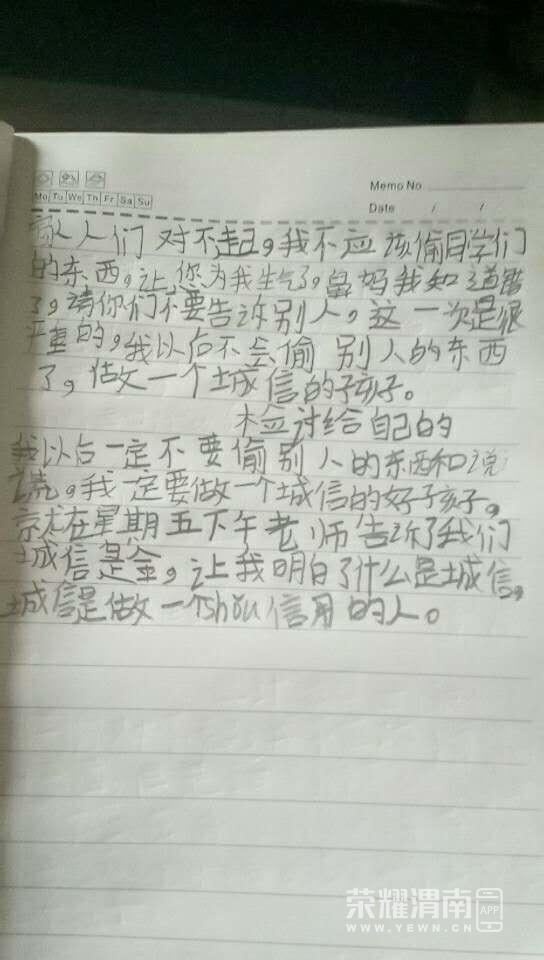 Memo No
Mo Tu We Th Fr Sa Su
Date / /
家人们对不起,我不应该偷同学们
的东西,让您为我生气了,爸妈我知道错
了,请你们不要告诉别人,这一次是很
严重的,我以后不会偷别人的东西
了,做一个城信的孩子。
检讨给自己的
我以后一定不要偷别人的东西和说
谎。我一定要做一个城信的好子孩子。
就在星期五下午老师告诉了我们
城信是金,让我明白了什么是城信,
城信是做一个shǒu信用的人。
荣耀渭南 APP
WWW.YEWN.CN